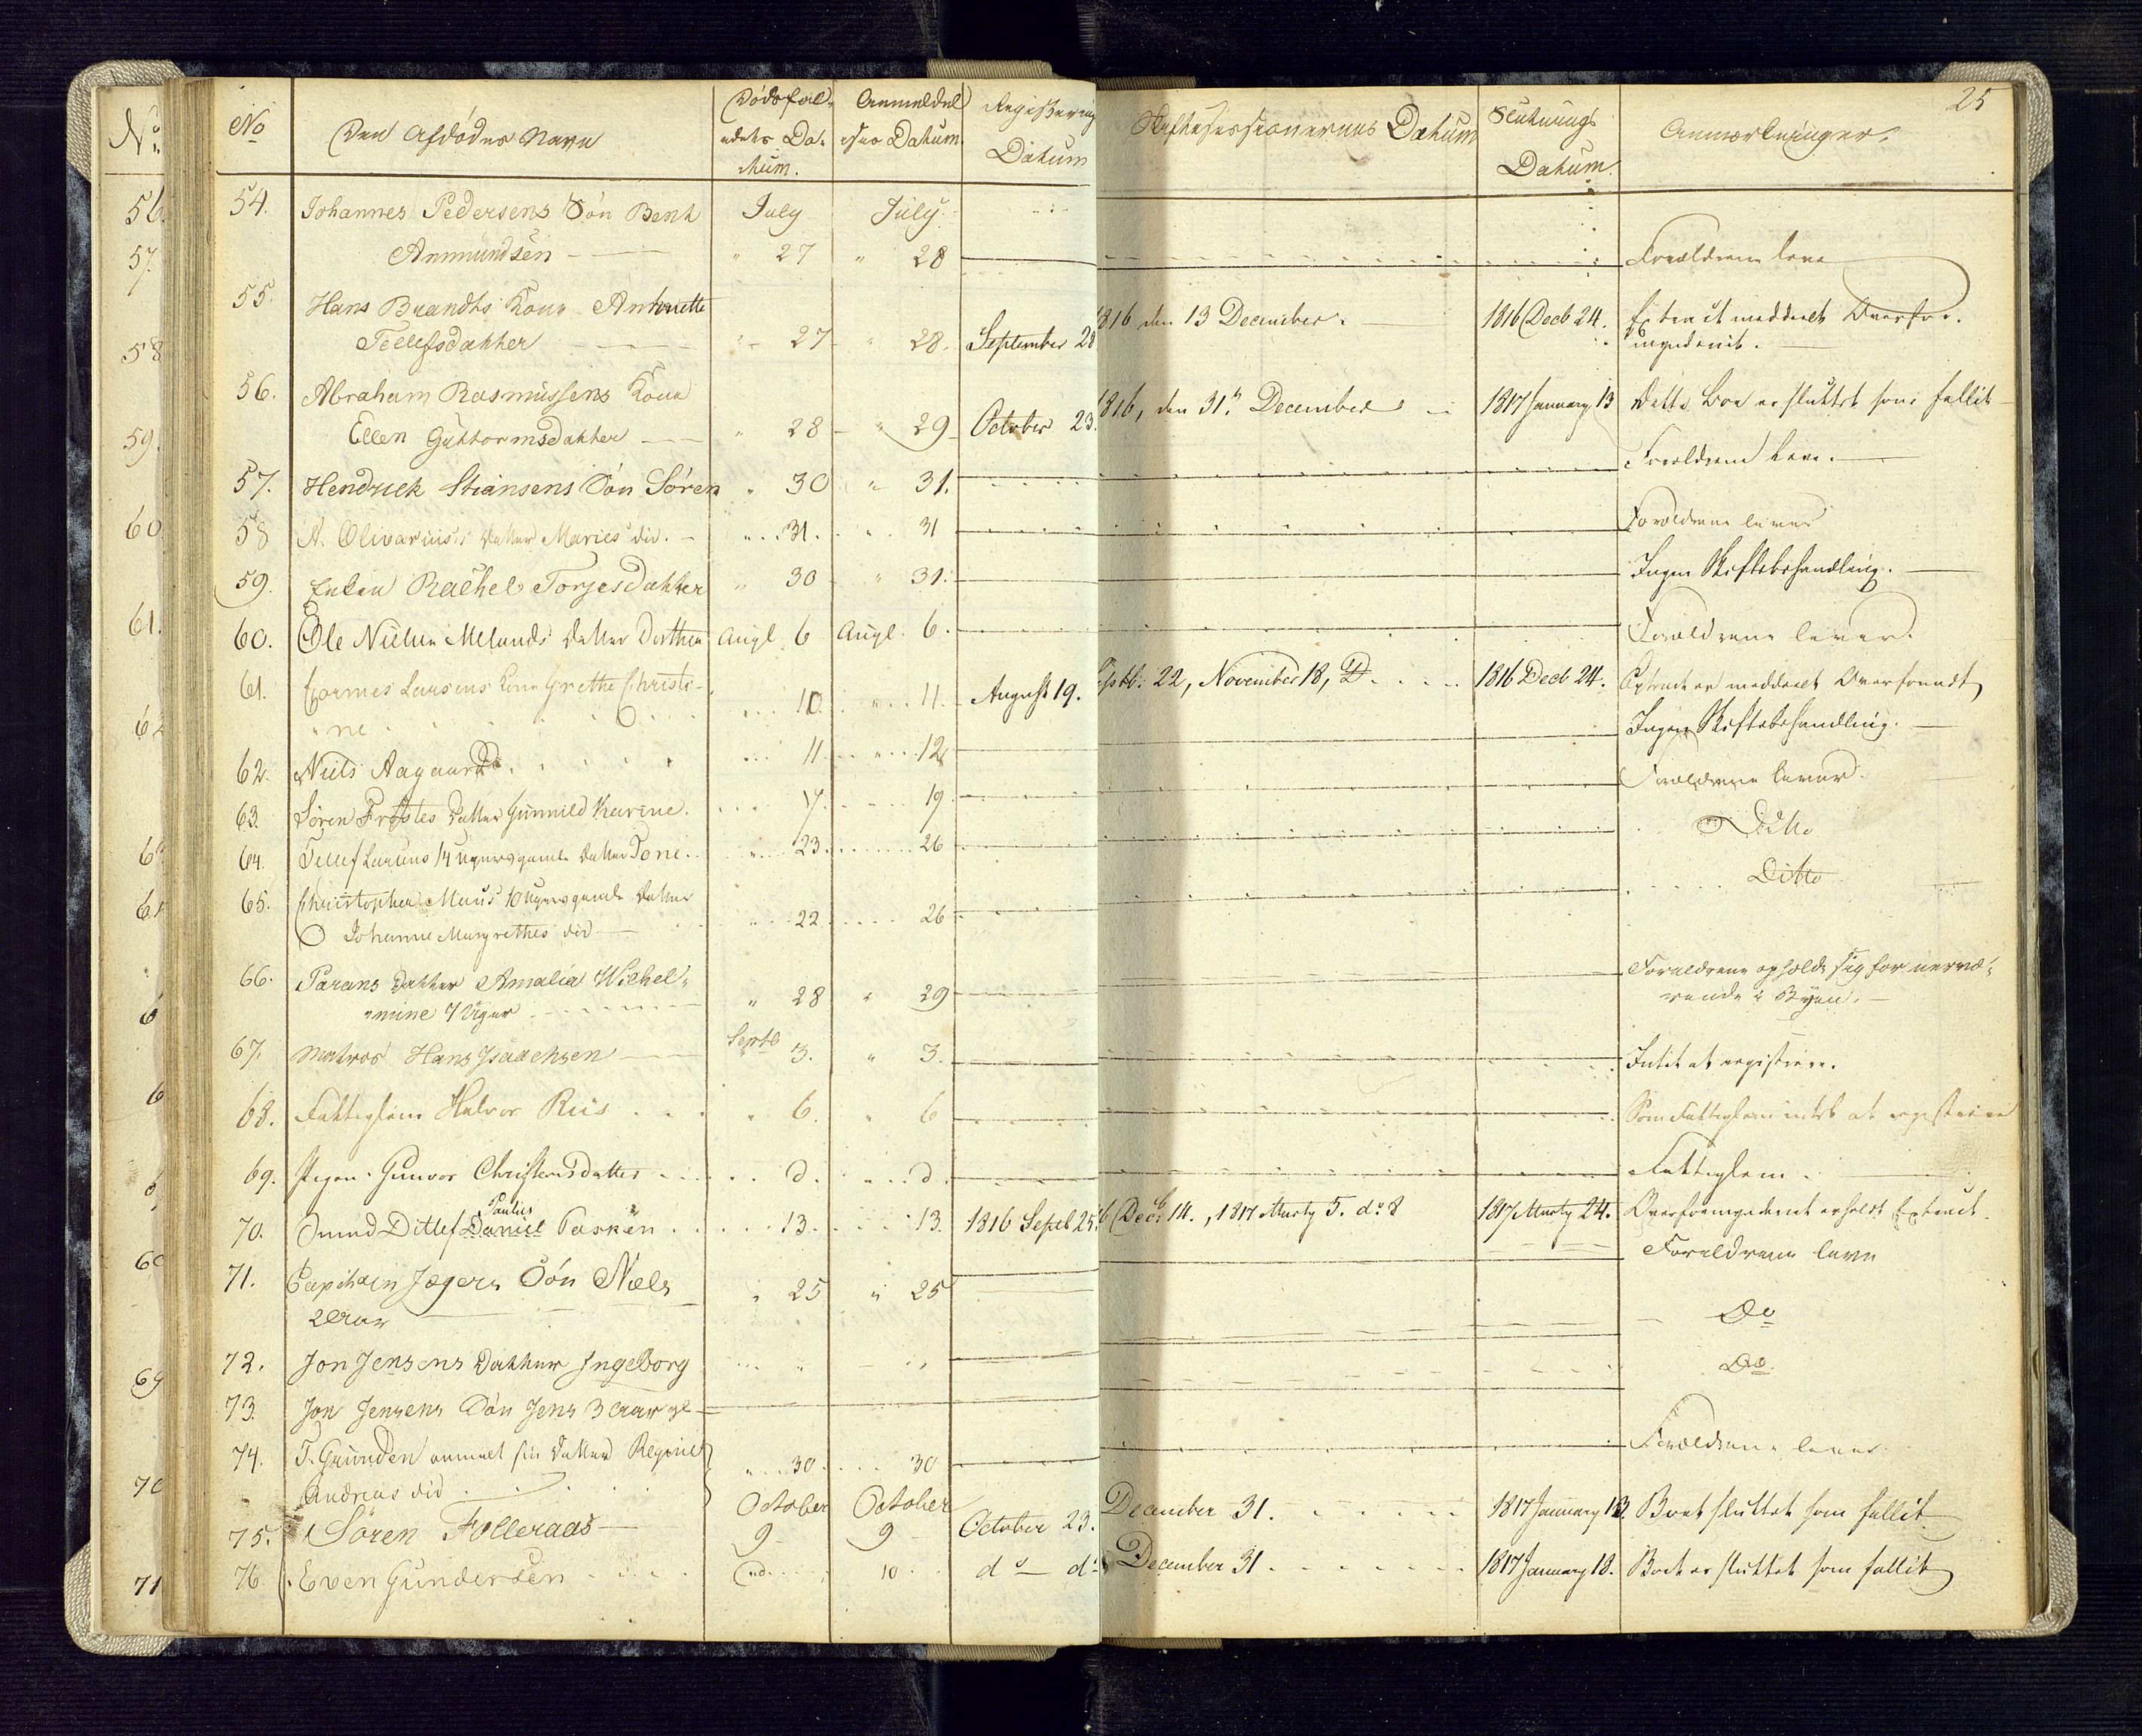 25
No Den Afdødes Navn Dødsfal- Anmeldel Registering Skiftesessionernes Datum Slutnings Anmærkninger.
edets Da- sses Datum. Datum Datum.
tum.
54. Johannes Pedersens Søn Bent July July
Anmundsen 27 28 Forældrene leve
55. Hans Brandts Kone Antonette 1816 den 13 December. 1816 Decb 24. Extract meddeelt Overfor-
Tellefsdatter 27 28. September 28 mynderiet.
56. Abraham Rasmussens Kone 1816, den 31. December 1817 January 13 Dette Boe er sluttet som fallit
Ellen Guttormsdatter 28 29 October 23.
57. Hendrick Stiansens Søn Søren 30 31. Forældrene leve.
58 A. Olivarius's datter Maries død. 31. 31 Forældrene lever
59. Enken Rachel Torjesdatter 30 31. Ingen Skiftebehandling.
60. Ole Nielsen Melands datter Dorthea Augl. 6 Augl. 6. Forældrene lever.
61. Hermes Larsens Kone Grethe Christi- 10. 11. August 19. Septb. 22, November 18, 1816 Decb 24. Extract er meddeelt
ne
62. Niels Aagaard 11 12 Ingen Skiftebehandling.
63. Søren Frostes datter Gunnild Karine. 17. 19. Forældrene lever.
64. Tellef Larsens 14 Ugers gamle datter Tone. 23. 26 Ditto
65. Christopher Muus' 10 Ugers gamle datter Ditto
Johanne Margrethes død 22. 26
66. Parans datter Amalia Wilhel- Forældrene opholde sig for nærvæ-
mine 7 Uger 28 29 rende i Byen.
67. Matros Hans Isaachsen Septb 3. 3. Intet at registrere.
68. Fattiglem Halvor Riis 6. 6 Som Fattiglem intet at registrere
69. Pigen Gunvor Christensdatter d. d. Fattiglem.
Paulus
70. Omund Ditlef Daniel Pasken 13. 13. 1816 Septb 25. Dec. 14., 1817 Marty 5. do 8 1817 Marty 24. Overformynderiet erholdt Extract.
71. Capitain Jægers Søn Niels 25 25 Forældrene leve
2 Aar Do
72. Jon Jensens Datter Ingeborg Do
73. Jon Jensens Søn Jens 3 Aar gl
74. T. Grunden anmelt sin datter Regine 30. 30 Forældrene lever
Andreas død
October October
75. Søren Folleraas 9 9 October 23. December 31. 1817 January 13. Boet sluttet som fallit
76. Even Gundersen d. 10 do do December 31 1817 January 18. Boet er sluttet som fallit
No
56.
57.
58
59.
60
61.
62
69
70
71